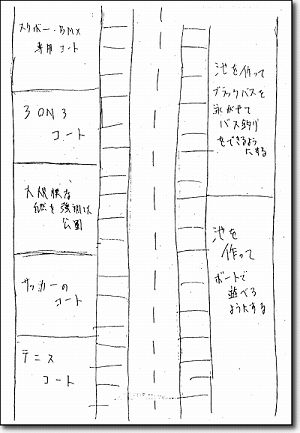 スケボー・BMX
専用コート
3 ON 3
コート
大規模な
自然を強調した
公園
サッカーの
コート
テニス
コート
池を作って
ブラックバスを
泳がせて
バス釣り
をできるよう
にする
池を
作って
ボートで
遊べる
ようにする